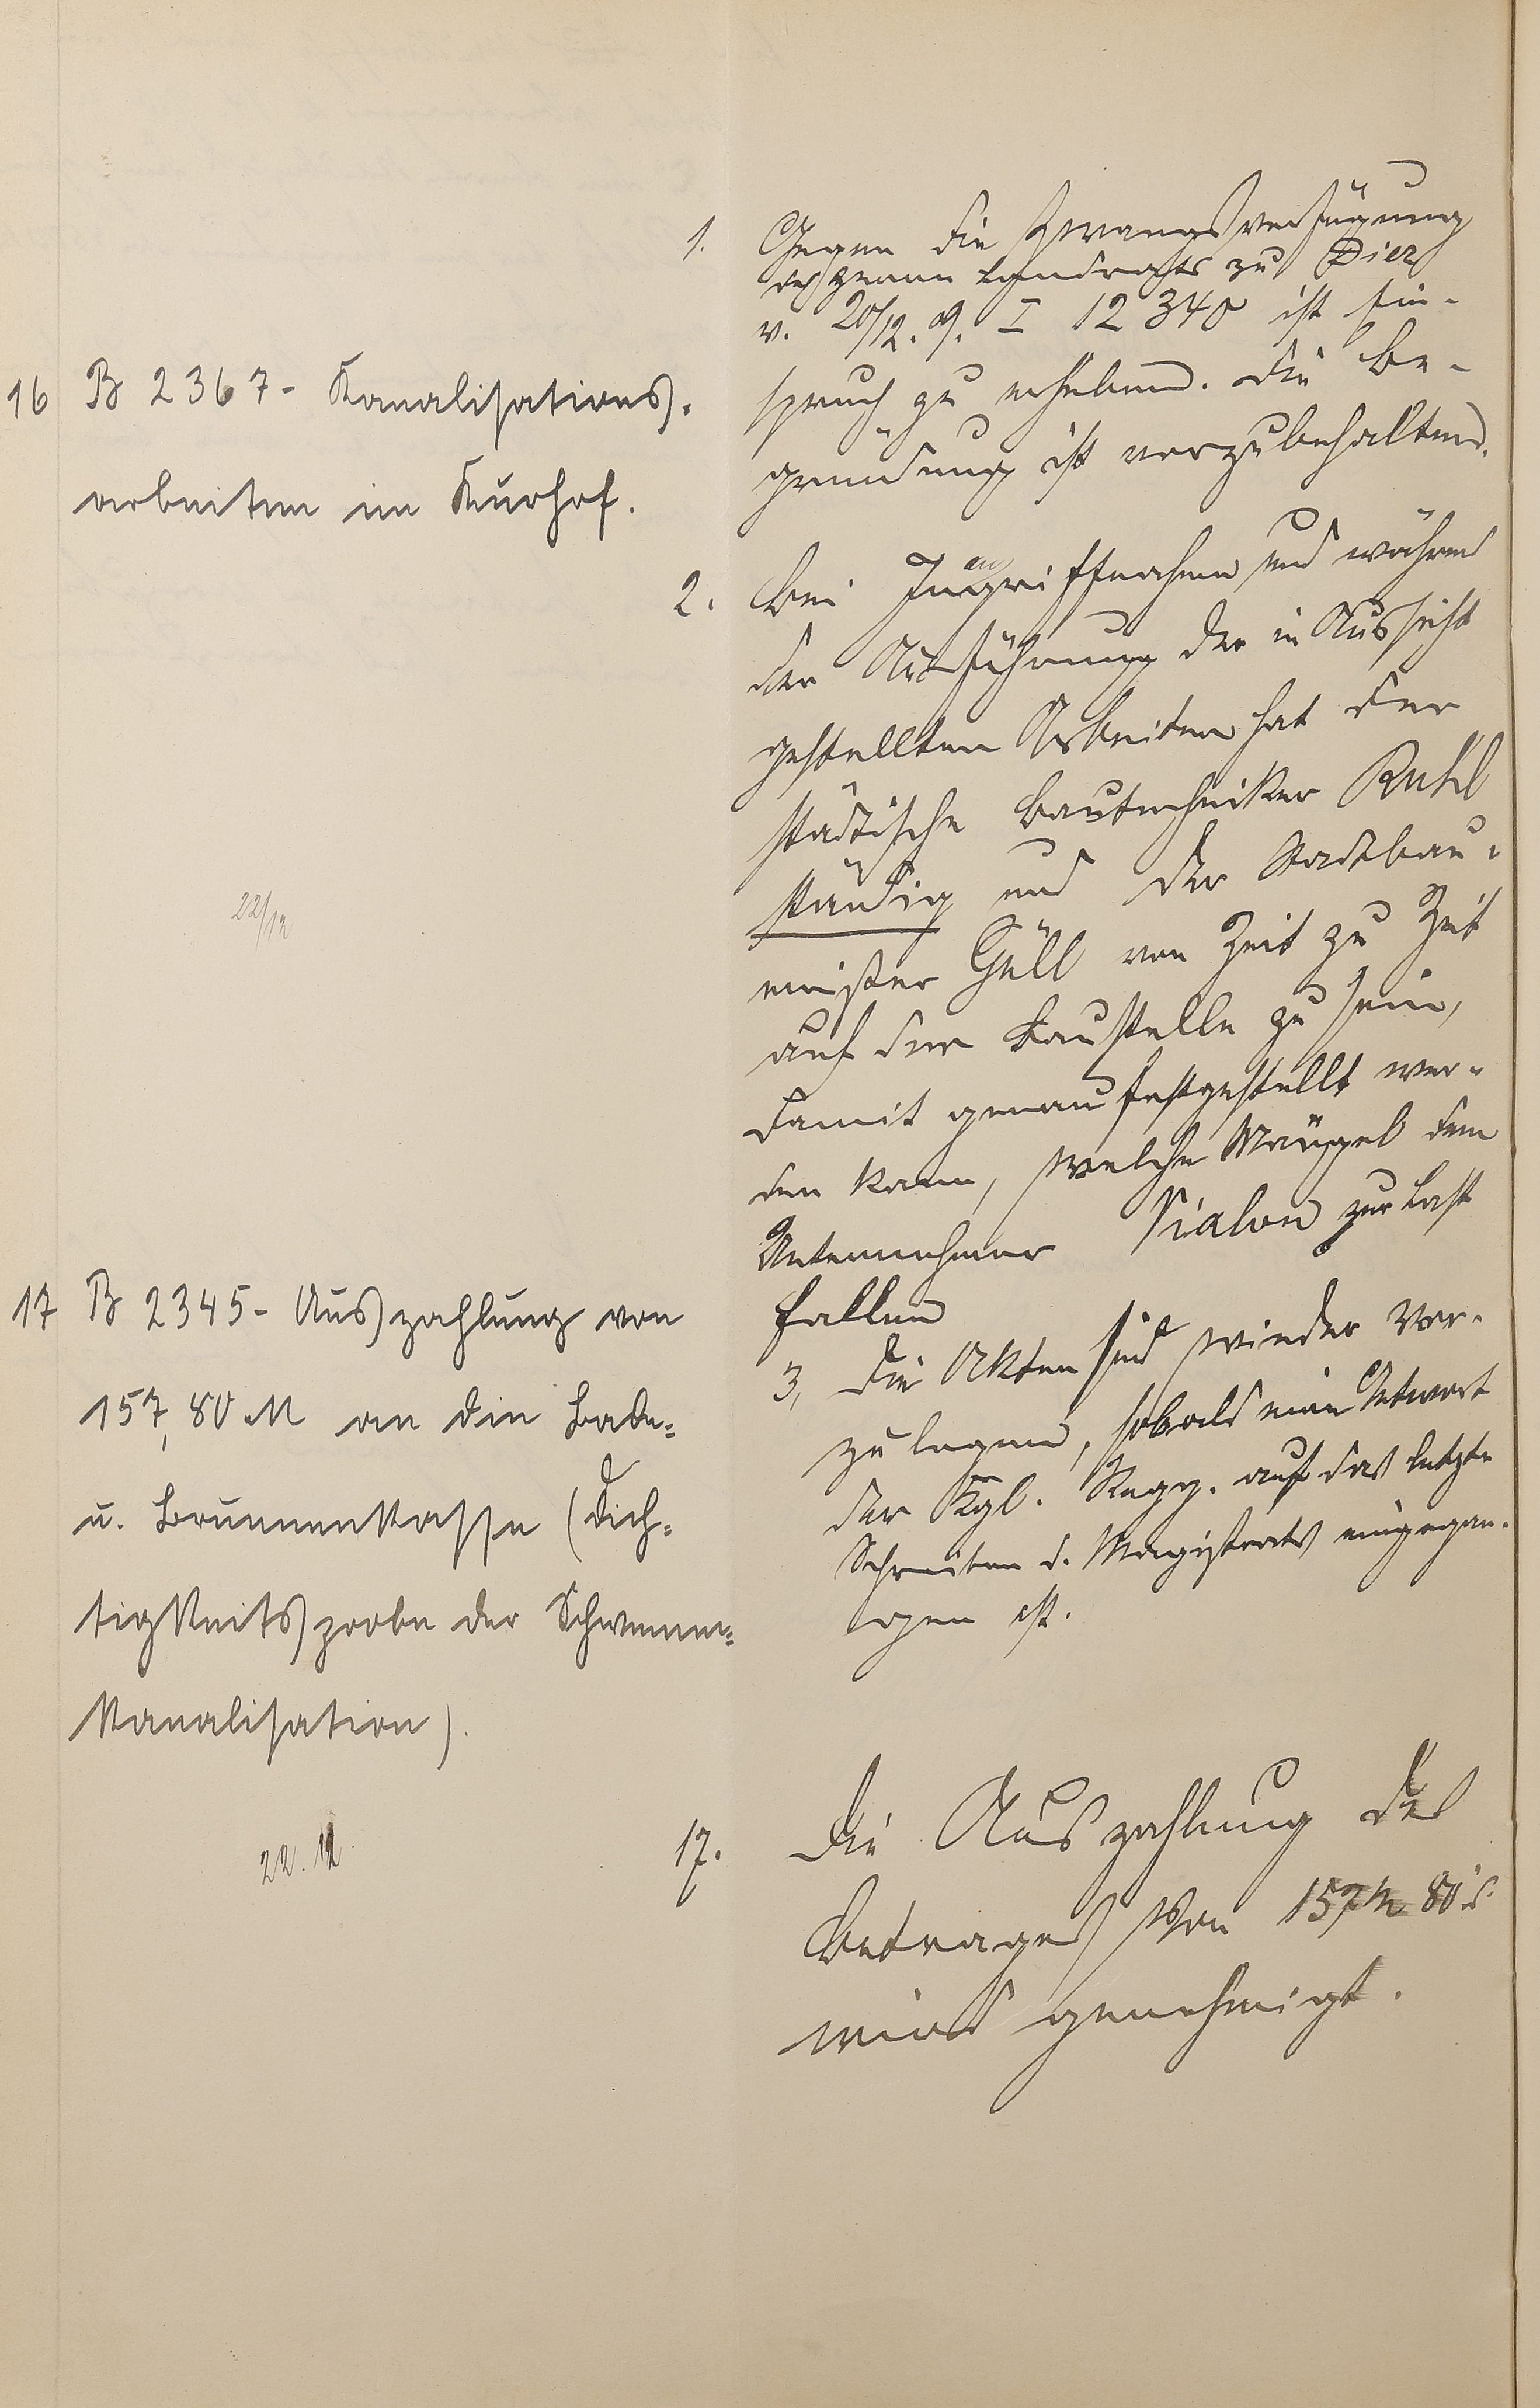 16 B 2367 - Kanalisations-
arbeiten im Kurhof.
22/12
1. Gegen die Zwangsverfügung
des Herrn Landrats zu Diez
v. 20/12. 09. I 12 340 ist Ein-
spruch zu erheben. Die Be-
gründung ist vorzubehalten.
2. Bei Inangriffnahme und während
der Ausführung der in Aussicht
gestellten Arbeiten hat der
städtische Bautechniker Ruhl
ständig und der Stadtbau-
meister Güll von Zeit zu Zeit
auf der Baustelle zu sein,
damit genau festgestellt wer-
den kann, welche Mängel dem
Unternehmer Sialon zur Last
fallen
3, Die Akten sind wieder vor-
zulegen, sobald eine Antwort
der Kgl. Regg. auf das letzte
Schreiben d. Magistrats eingegan-
gen ist.
17 B 2345 - Auszahlung von
157,80 M an die Bade-
u. Brunnenkasse (Dich-
tigkeitsprobe der Schwemm-
kanalisation).
22. 12.
17. Die Auszahlung des
Betrages von 157 M 80 d.
wird genehmigt.